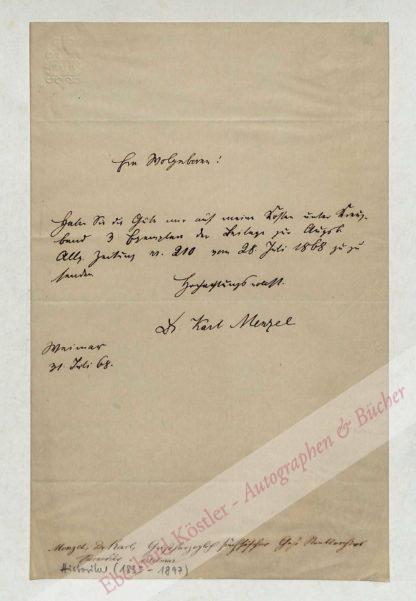 Euer Wolgeboren!
Haben Sie die Güte mir auf meine Kosten unter Kreuz-
band 3 Exemplare der Beilage zur Augsb.
Allg. Zeitung nr. 210 vom 28 Juli 1868 zu zu
senden
Hochachtungsvollst.
Dr Karl Menzel
Weimar
31. Juli 68.
Menzel, Dr Karl, Großherzoglich sächsischer
Historiker (1835-1897)
Eberhard Köstler - Autographen & Bücher